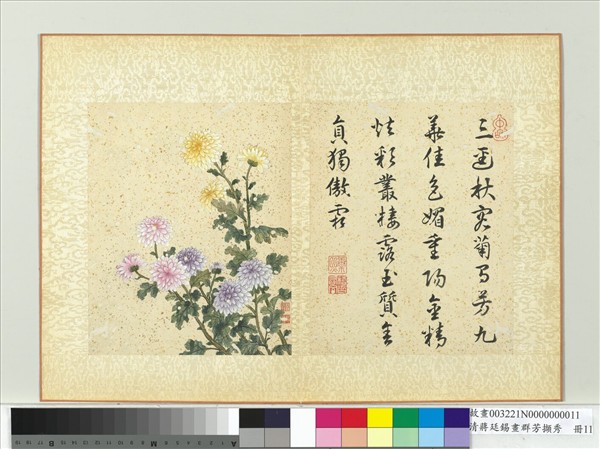 三逕秋容菊有芳九
華佳色媚重陽金精
炫彩叢棲露玉質含
貞獨傲霜
故畫003221N000000011
清蔣廷錫畫群芳擷秀 冊11